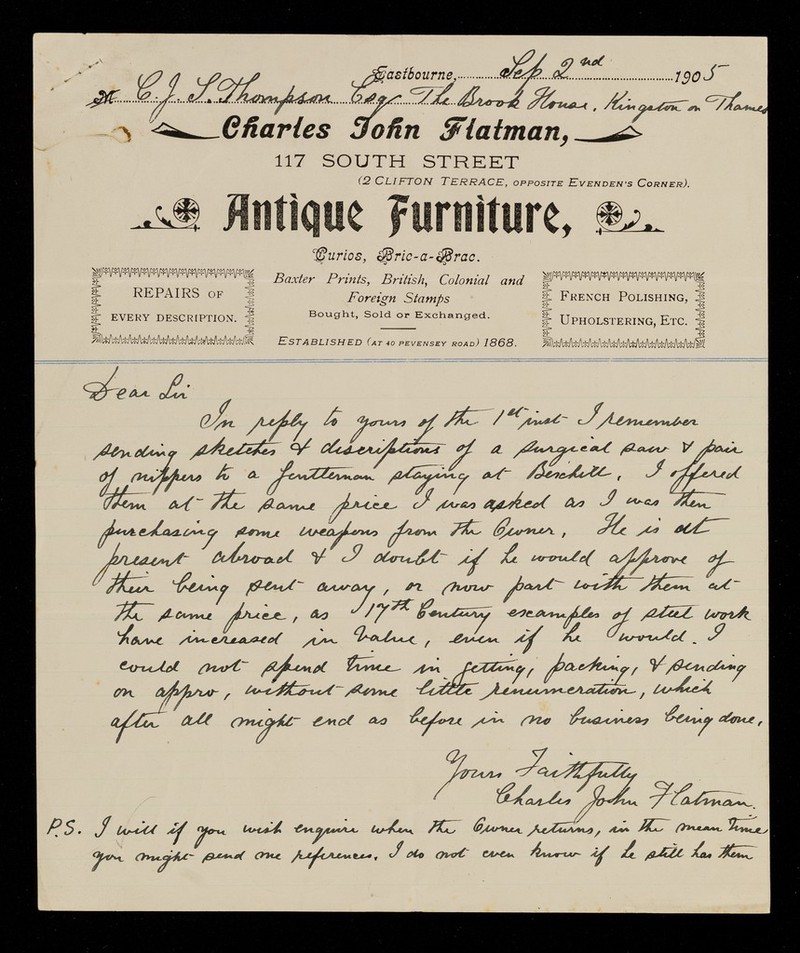 Eastbourne, Sep 2nd 1905
M C. J. S. Thompson Esq The Brook House, Kingston on Thames
Charles John Flatman,
117 SOUTH STREET
(2 CLIFTON TERRACE, OPPOSITE EVENDEN'S CORNER).
Antique Furniture,
Curios, Bric-a-Brac.
REPAIRS OF
EVERY DESCRIPTION.
Baxter Prints, British, Colonial and
Foreign Stamps
Bought, Sold or Exchanged.
ESTABLISHED (AT 40 PEVENSEY ROAD) 1868.
FRENCH POLISHING,
UPHOLSTERING, ETC.
Dear Sir
In reply to yours of the 1st inst I remember
sending sketches & discriptions of a surgical saw & pair
of nippers to a Gentleman staying at Bexhill. I offered
them at the same price I was asked as I was then
purchasing some weapons from the Owner, He is at
present abroad & I doubt if he would approve of
their being sent away, or now part with them at
the same price, as 17th Century examples of steel work
have increased in value, even if he would. I
could not spend time in getting, packing, & sending
on appro, without some little renumeration, which
after all might end as before in no business being done,
Yours Faithfully
Charles John Flatman.
P.S. I will if you wish enquire when the Owner returns, in the mean time
you might send me references. I do not even know if he still has them